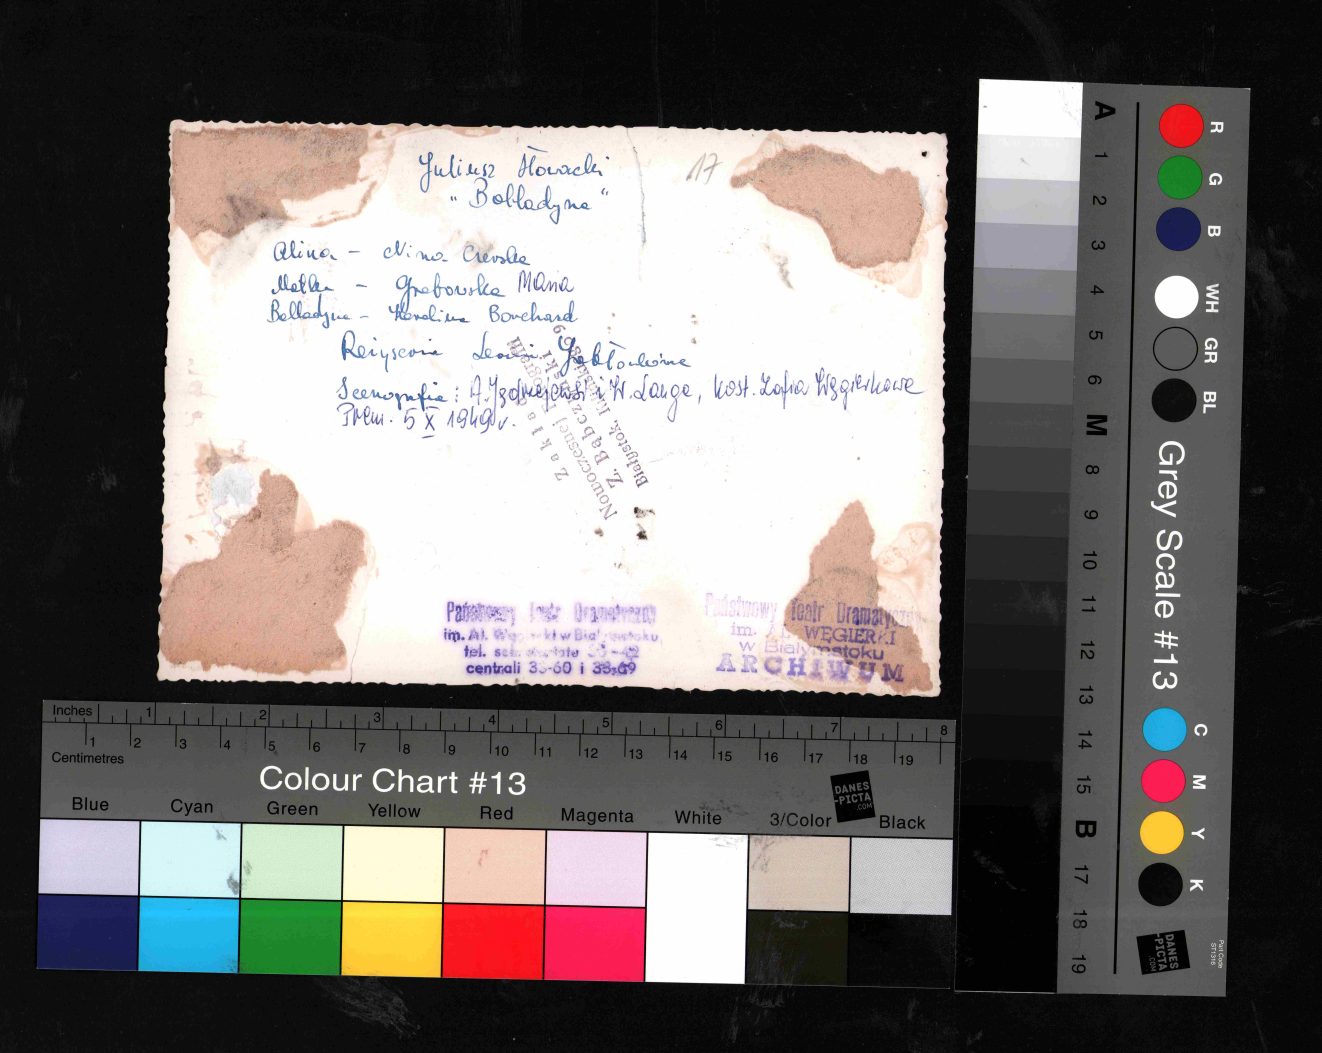 Juliusz Słowacki
"Balladyna"
17
Alina - Nina Czerska
Matka - Grabowska Maria
Balladyna - Karolina Borchard
Reżyseria Leonia Jabłonkówna
Scenografia: A. Jędrzejewski i W. Lange, kost. Zofia Węgierkowa
Prem. 5 X 1949 r.
Zakład
Nowoczesnej Fotografii
Z. Bąbczyński
Białystok, Kilińskiego 9
Państwowy Teatr Dramatyczny
im. Al. Węgierki w Białymstoku
tel. sekretariatu 35-42
centrali 35-60 i 38-69
Państwowy Teatr Dramatyczny
im. AL. WĘGIERKI
w Białymstoku
ARCHIWUM
Inches 1 2 3 4 5 6 7 8
Centimetres 1 2 3 4 5 6 7 8 9 10 11 12 13 14 15 16 17 18 19
Colour Chart #13
DANES
-PICTA
.COM
Blue Cyan Green Yellow Red Magenta White 3/Color Black
A 1 2 3 4 5 6 M 8 9 10 11 12 13 14 15 B 17 18 19
R G B WH GR BL
Grey Scale #13
C M Y K
DANES
-PICTA
.COM
Part Code
ST1316